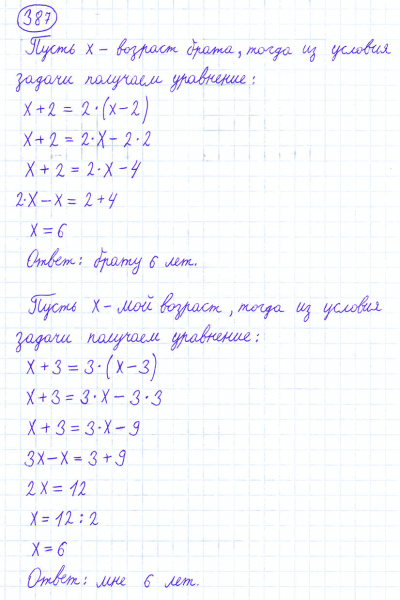 387
Пусть х - возраст брата, тогда из условия
задачи получаем уравнение:
х + 2 = 2·(х - 2)
х + 2 = 2·х - 2·2
х + 2 = 2·х - 4
2·х - х = 2 + 4
х = 6
Ответ: брату 6 лет.
Пусть х - мой возраст, тогда из условия
задачи получаем уравнение:
х + 3 = 3·(х - 3)
х + 3 = 3·х - 3·3
х + 3 = 3·х - 9
3х - х = 3 + 9
2х = 12
х = 12 : 2
х = 6
Ответ: мне 6 лет.